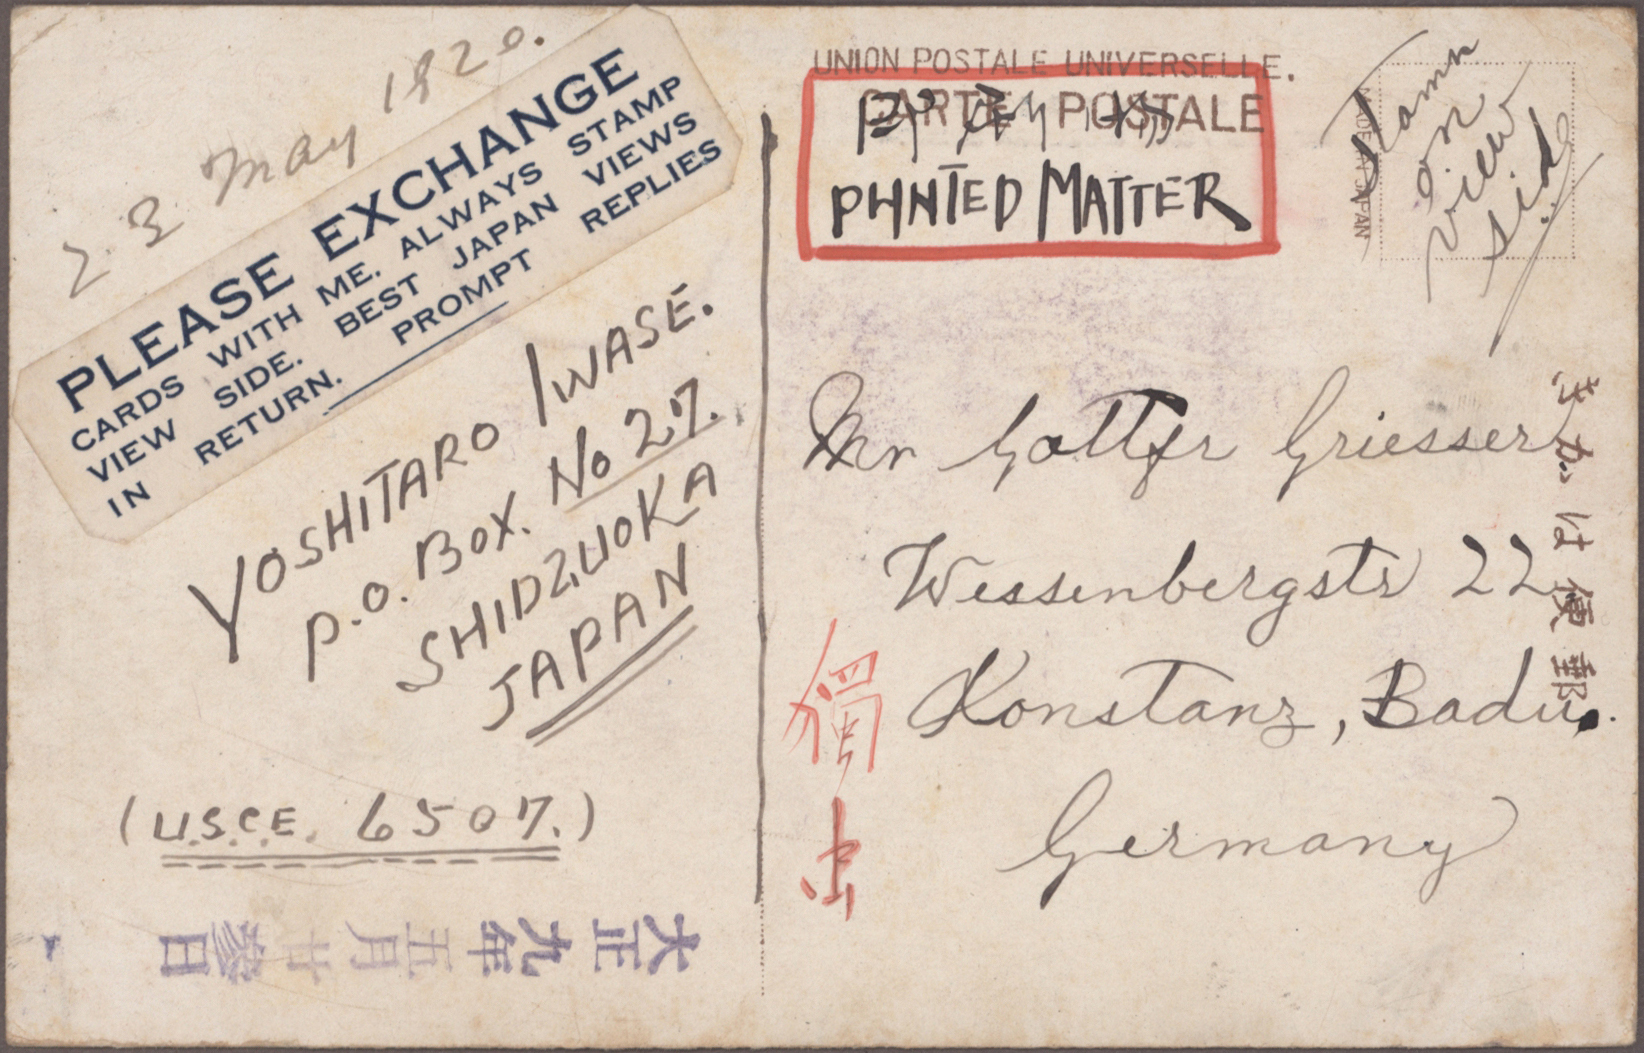 23 May 1920.
PLEASE EXCHANGE
CARDS WITH ME. ALWAYS STAMP
VIEW SIDE. BEST JAPAN VIEWS
IN RETURN. PROMPT REPLIES
YOSHITARO IWASE.
P.O. BOX. No 27.
SHIDZUOKA
JAPAN
(U.S.C.E. 6507.)
大正九年五月廿参日
UNION POSTALE UNIVERSELLE.
CARTE POSTALE
印刷物
PHNTED MATTER
Stamp
on
view
side
MADE IN JAPAN
Mr Gottfr Griesser
Wessenbergstr 22
Konstanz, Baden.
Germany
獨
郵便はがき